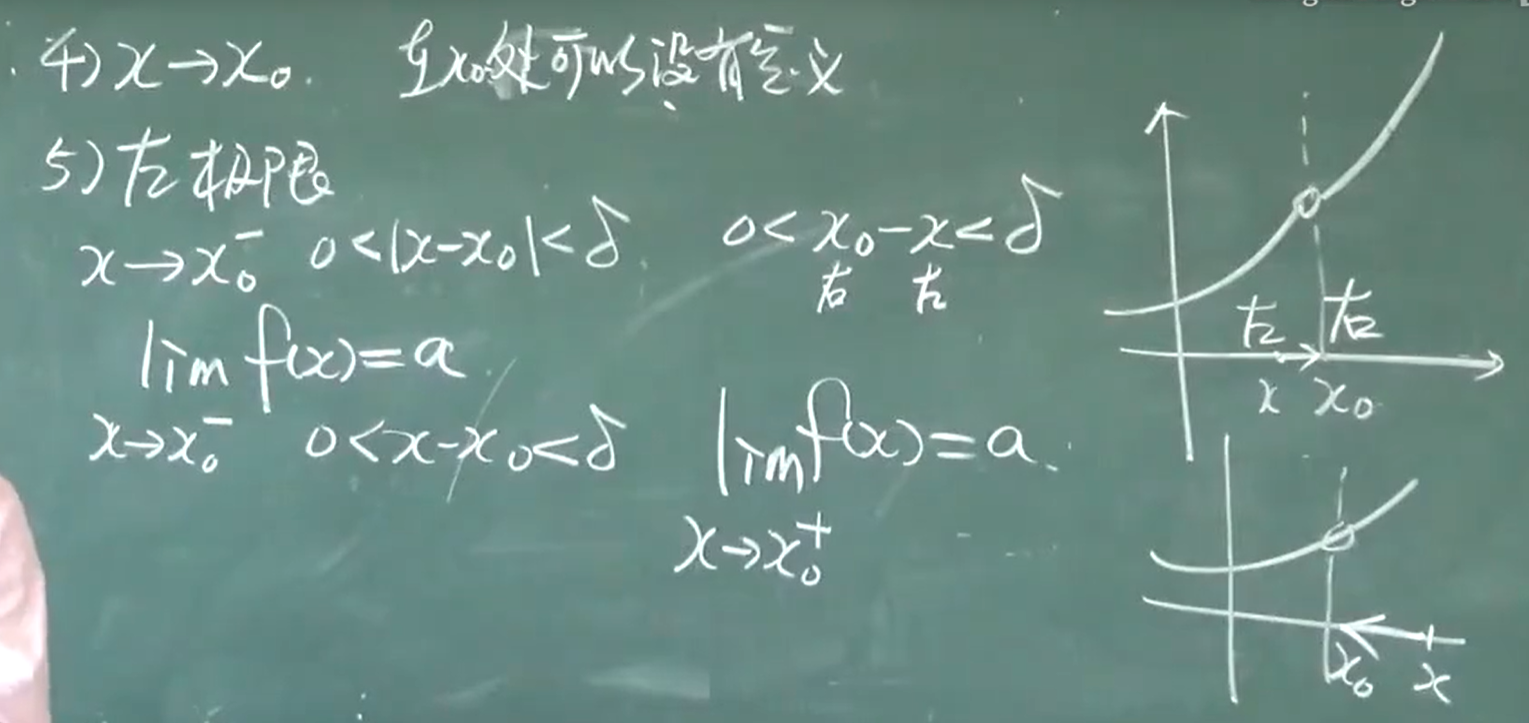 4) x→x₀. 在x₀处可以没有定义
5) 左极限
x→x₀⁻ 0<|x-x₀|<δ 0<x₀-x<δ
右 左
lim f(x)=a
x→x₀⁻ 0<x-x₀<δ lim f(x)=a
x→x₀⁺
左 右
x x₀
x₀ x